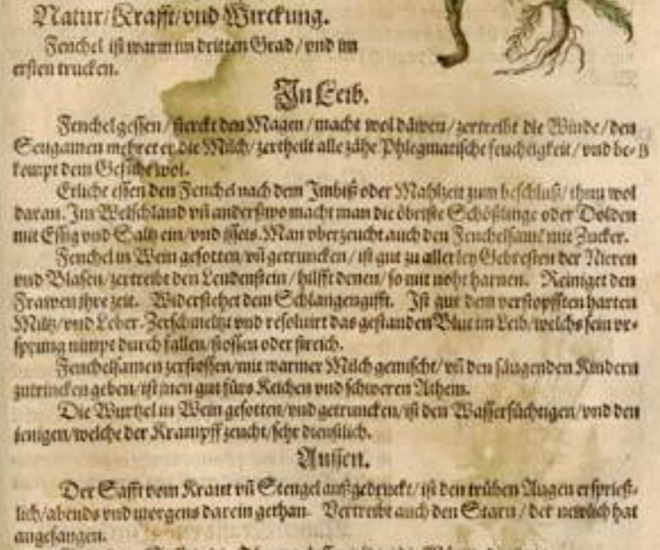 Natur/Krafft/vnd Wirckung.
Fenchel ist warm im dritten Grad/vnd im
ersten trucken.
In Leib.
Fenchel gessen/sterckt den Magen/macht wol däwen/zertreibt die Winde/den
Seugamen mehret er die Milch/zertheilt alle zähe Phlegmatische feuchtigkeit/vnd be-
kompt dem Gesicht wol.
Etliche essen den Fenchel nach dem Imbiß oder Mahlzeit zum beschluß/thun wol
daran. Im Welschland vñ anderstwo macht man die öberste Schößlinge oder Dolden
mit Essig vnd Saltz ein/vnd issets. Man vberzeucht auch den Fenchelsamẽ mit Zucker.
Fenchel in Wein gesotten/vñ getruncken/ist gut zu allerley Gebresten der Nieren
vnd Blasen/zertreibt den Lendenstein/hilfft denen/so mit noht harnen. Reiniget den
Frawen ihre zeit. Widerstehet dem Schlangengifft. Ist gut dem verstopfften harten
Miltz/vnd Leber. Zerschmeltzt vnd resoluirt das gestanden Blut im Leib/welchs sein vr-
sprung nimpt durch fallen/stossen oder streich.
Fenchelsamen zerstossen/mit warmer Milch gemischt/vñ den säugenden Kindern
zutrincken geben/ist jnen gut fürs Keichen vnd schweren Athem.
Die Wurtzel in Wein gesotten/vnd getruncken/ist den Wassersüchtigen/vnd den
jenigen/welche der Krampff zeucht/sehr dienstlich.
Aussen.
Der Safft vom Kraut vñ Stengel außgedruckt/ist den trüben Augen ersprießt-
lich/abends vnd morgens darein gethan. Vertreibt auch den Starn/der newlich hat
angefangen.